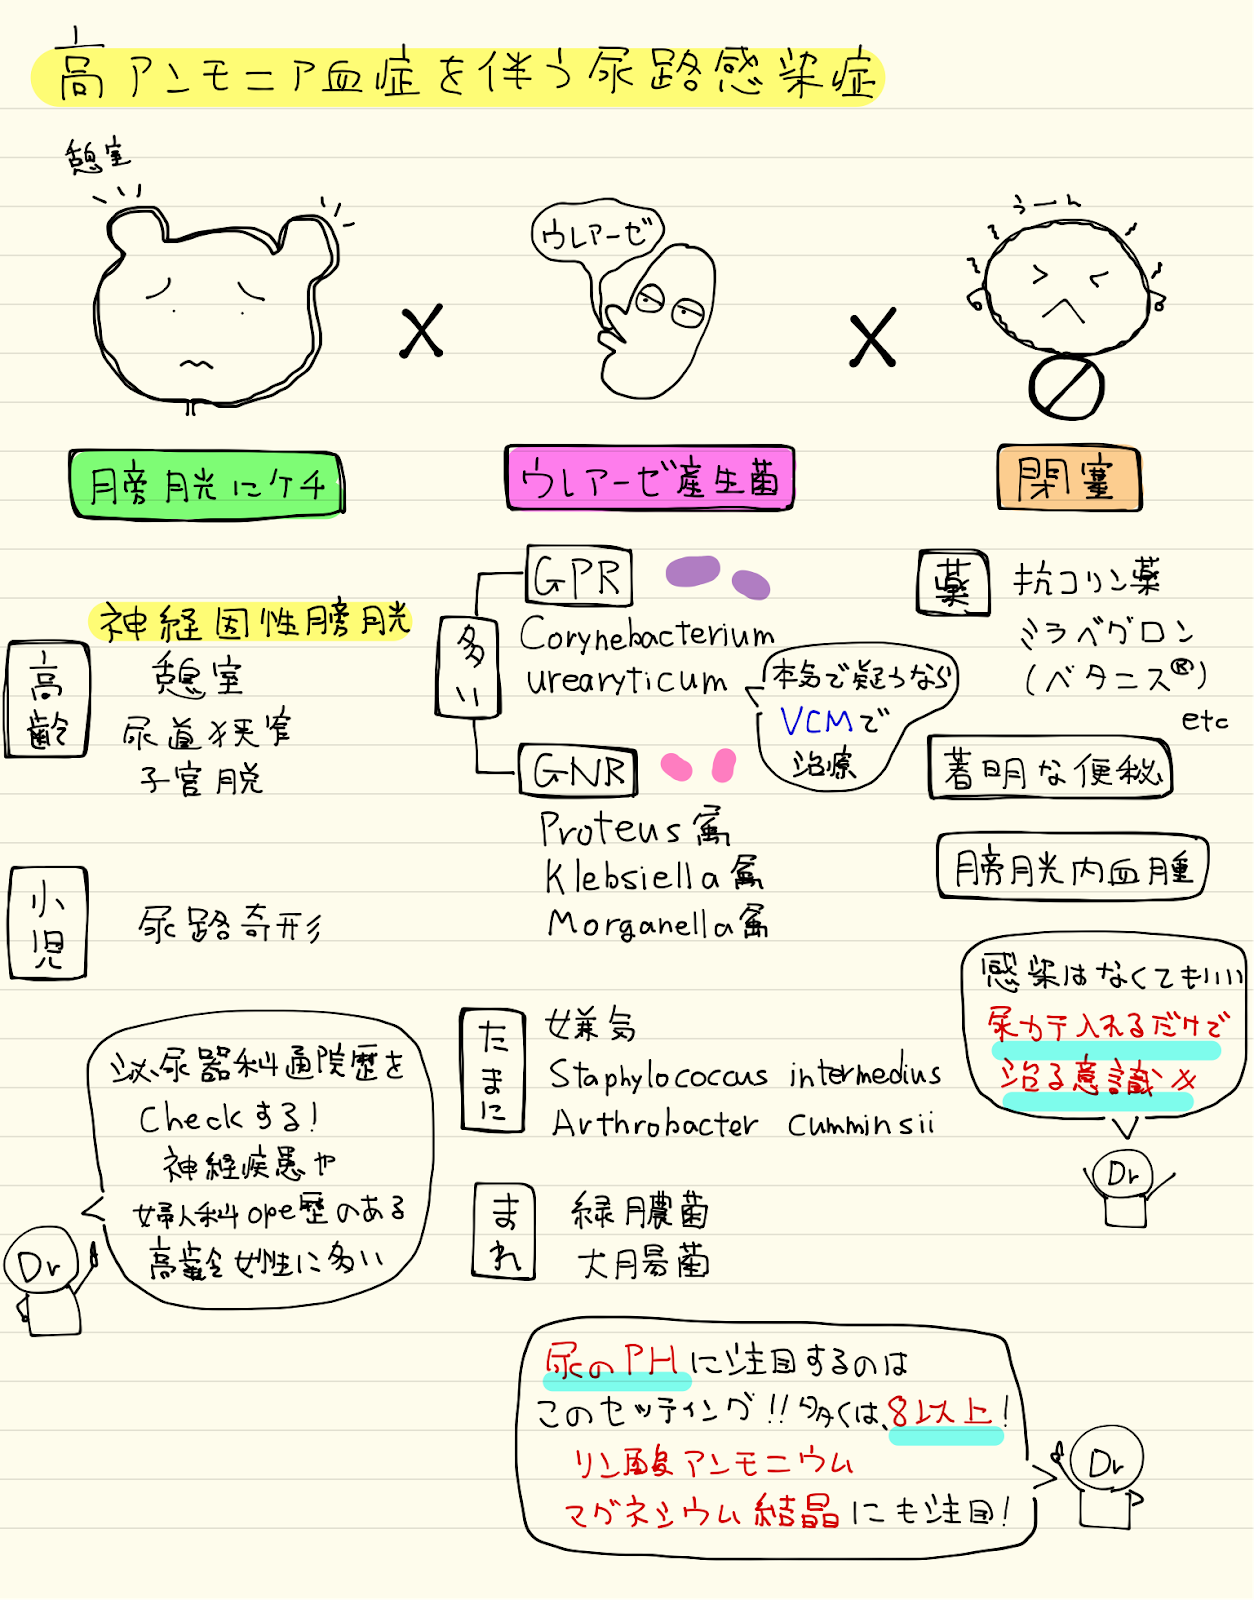 高アンモニア血症を伴う尿路感染症
憩室
ウレアーゼ
うーん
膀胱にケチ
ウレアーゼ産生菌
閉塞
高齢
神経因性膀胱
憩室
尿道狭窄
子宮脱
小児
尿路奇形
泌尿器科通院歴を
Checkする!
神経疾患や
婦人科ope歴のある
高齢女性に多い
Dr
多い
GPR
Corynebacterium
urearyticum
本気で疑うなら
VCMで
治療
GNR
Proteus属
Klebsiella属
Morganella属
たまに
嫌気
Staphylococcus intermedius
Arthrobacter cumminsii
まれ
緑膿菌
大腸菌
薬
抗コリン薬
ミラベグロン
(ベタニス®)
etc
著明な便秘
膀胱内血腫
感染はなくてもいい
尿カテ入れるだけで
治る意識×
Dr
尿のPHに注目するのは
このセッティング!!多くは、8以上!
リン酸アンモニウム
マグネシウム結晶にも注目!
Dr